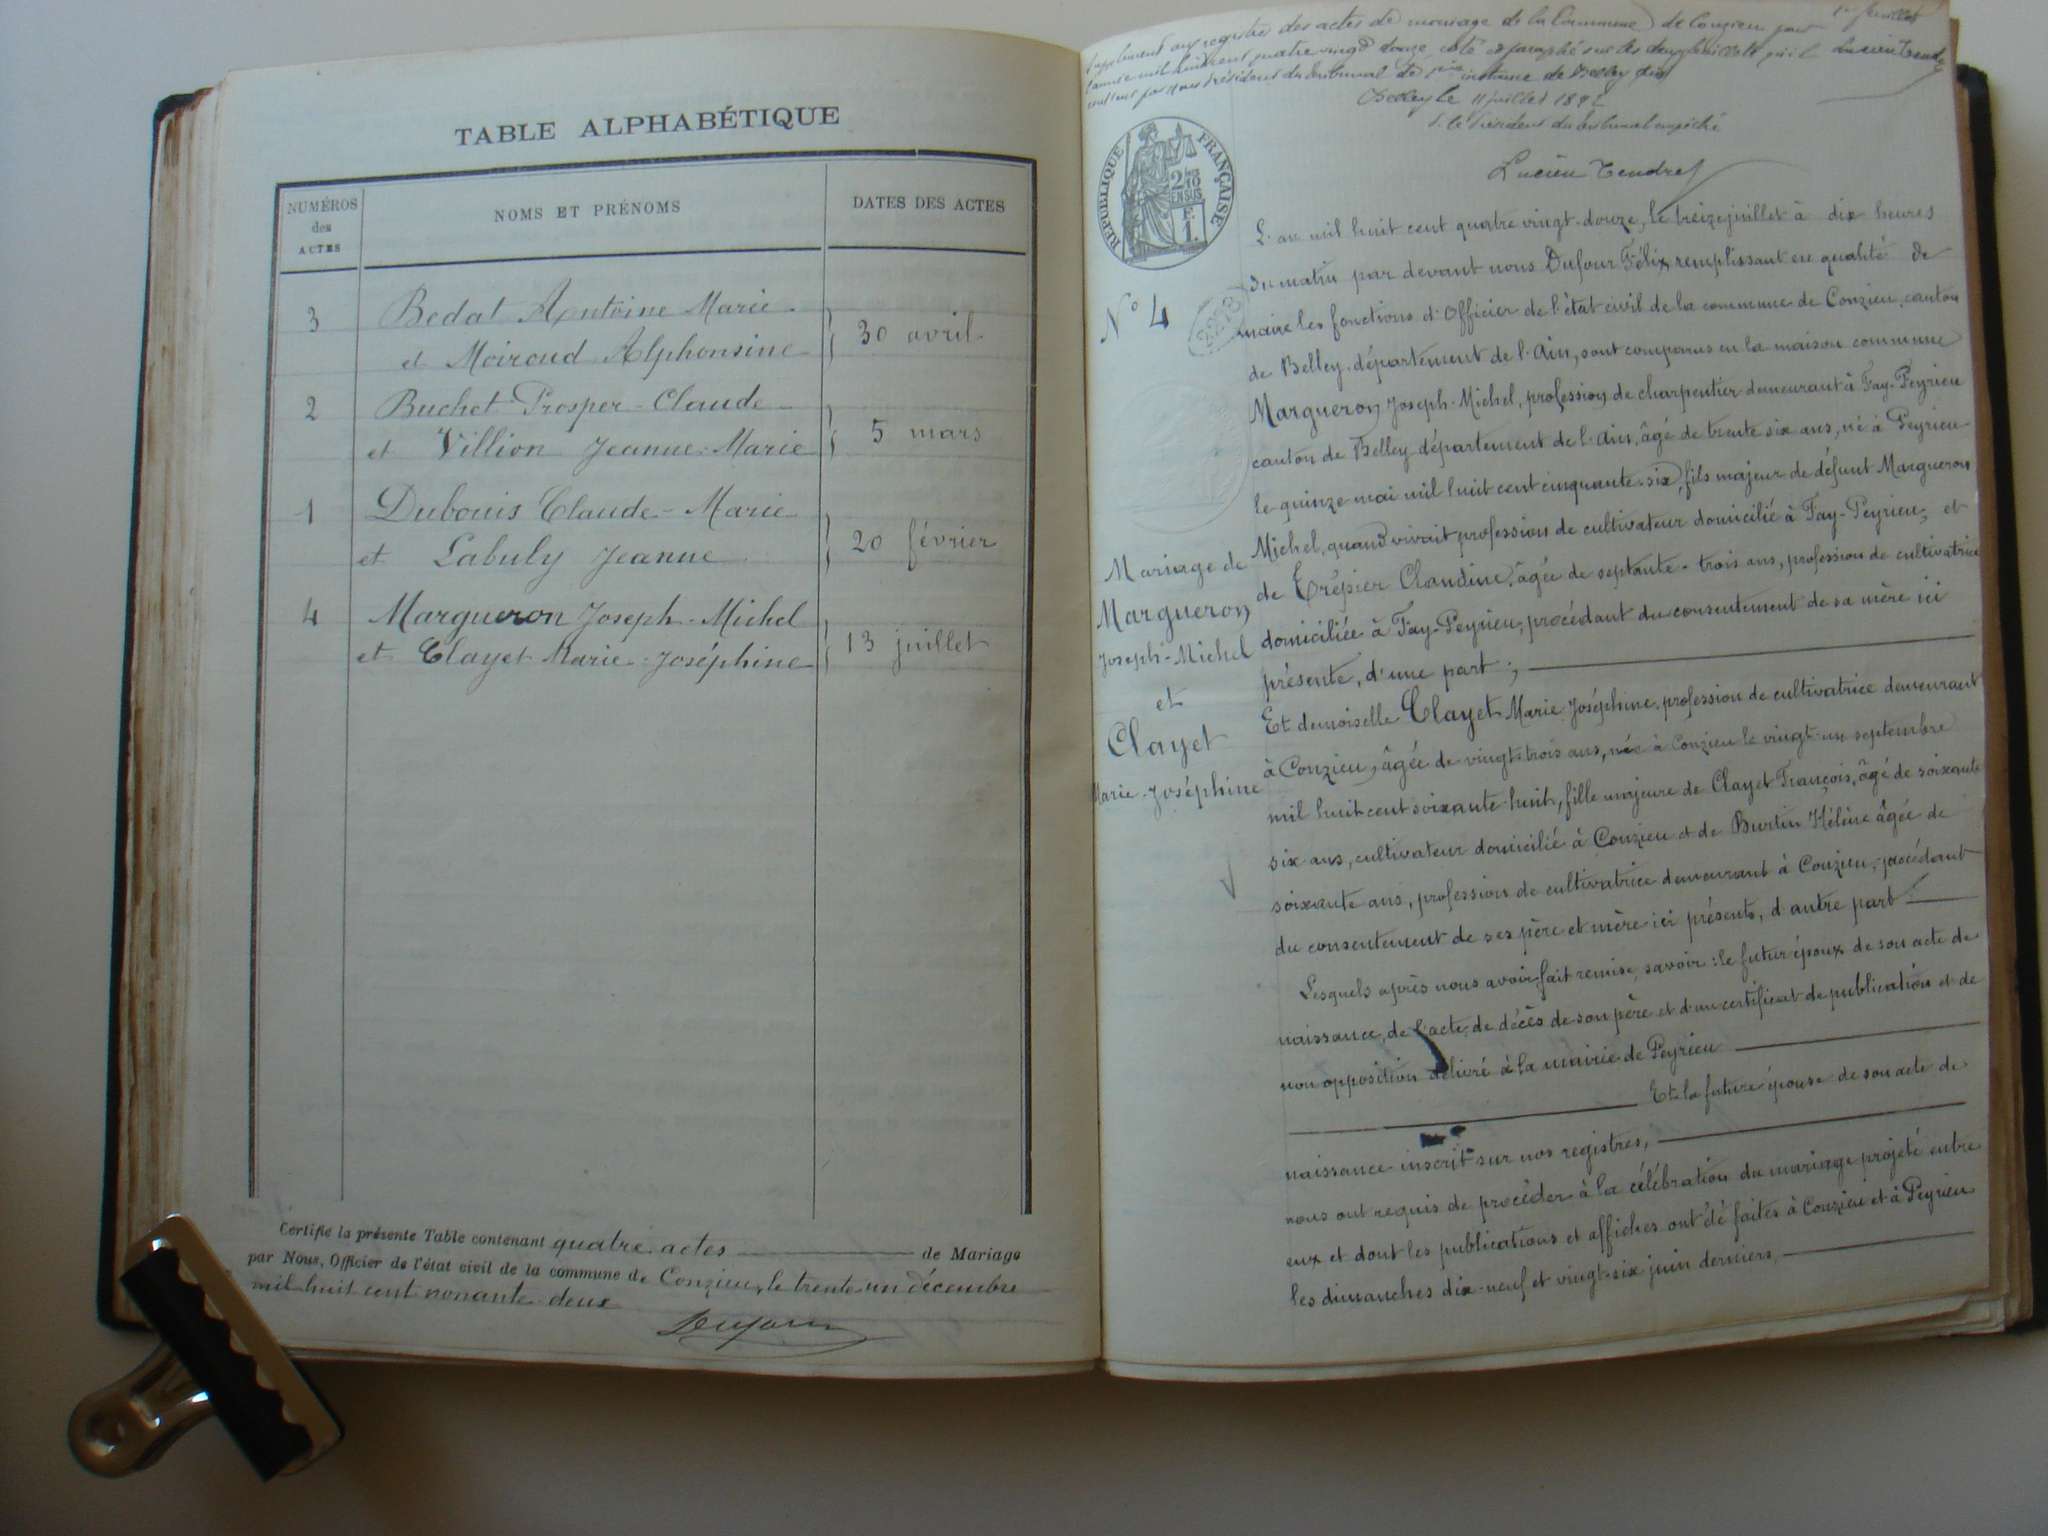 TABLE ALPHABÉTIQUE
NUMÉROS
des
ACTES
NOMS ET PRÉNOMS
DATES DES ACTES
3 Bedat Antoine Marie
et Moiroud Alphonsine 30 avril
2 Buchet Prosper-Claude
et Villion Jeanne-Marie 5 mars
1 Dubouis Claude-Marie
et Labuly Jeanne 20 février
4 Margueron Joseph-Michel
et Clayet Marie-Joséphine 13 juillet
Certifié la présente Table contenant quatre actes de Mariage
par Nous, Officier de l'état civil de la commune de Conzieu, le trente un décembre
mil huit cent nonante deux
Dufour
1er feuillet
Supplément aux registre des actes de mariage de la Commune de Conzieu pour
l'année mil huit cent quatre vingt douze coté et paraphé sur les deux feuillets qu'il Lucien Tendret
contient par nous Président du tribunal de 1ère instance de Belley
Belley le 11 juillet 1892
P. le Président du tribunal empêché
Lucien Tendret
RÉPUBLIQUE FRANÇAISE
2/10
EN SUS
F.
1.
2273
N° 4
Mariage de
Margueron
Joseph-Michel
et
Clayet
Marie-Joséphine
L'an mil huit cent quatre vingt-douze, le treize juillet à dix heures
du matin par devant nous Dufour Félix remplissant en qualité de
maire les fonctions d'Officier de l'état civil de la commune de Conzieu, canton
de Belley, département de l'Ain, sont comparus en la maison commune
Margueron Joseph-Michel, profession de charpentier demeurant à Fay-Peyrieu
canton de Belley département de l'Ain, âgé de trente six ans, né à Peyrieu
le quinze mai mil huit cent cinquante-six, fils majeur de défunt Margueron
Michel, quand vivait profession de cultivateur domicilié à Fay-Peyrieu, et
de Trépier Claudine, âgée de septante-trois ans, profession de cultivatrice
domiciliée à Fay-Peyrieu, procédant du consentement de sa mère ici
présente, d'une part ;
Et demoiselle Clayet Marie Joséphine, profession de cultivatrice demeurant
à Conzieu, âgée de vingt-trois ans, née à Conzieu le vingt-un septembre
mil huit cent soixante-huit, fille majeure de Clayet François, âgé de soixante
six ans, cultivateur domicilié à Conzieu et de Burtin Hélène âgée de
soixante ans, profession de cultivatrice demeurant à Conzieu, procédant
du consentement de ses père et mère ici présents, d'autre part
Lesquels après nous avoir fait remise, savoir : le futur époux de son acte de
naissance, de l'acte de décès de son père et d'un certificat de publication et de
non opposition délivré à la mairie de Peyrieu
Et la future épouse de son acte de
naissance inscrit sur nos registres,
nous ont requis de procéder à la célébration du mariage projeté entre
eux et dont les publications et affiches ont été faites à Conzieu et à Peyrieu
les dimanches dix-neuf et vingt-six juin derniers,